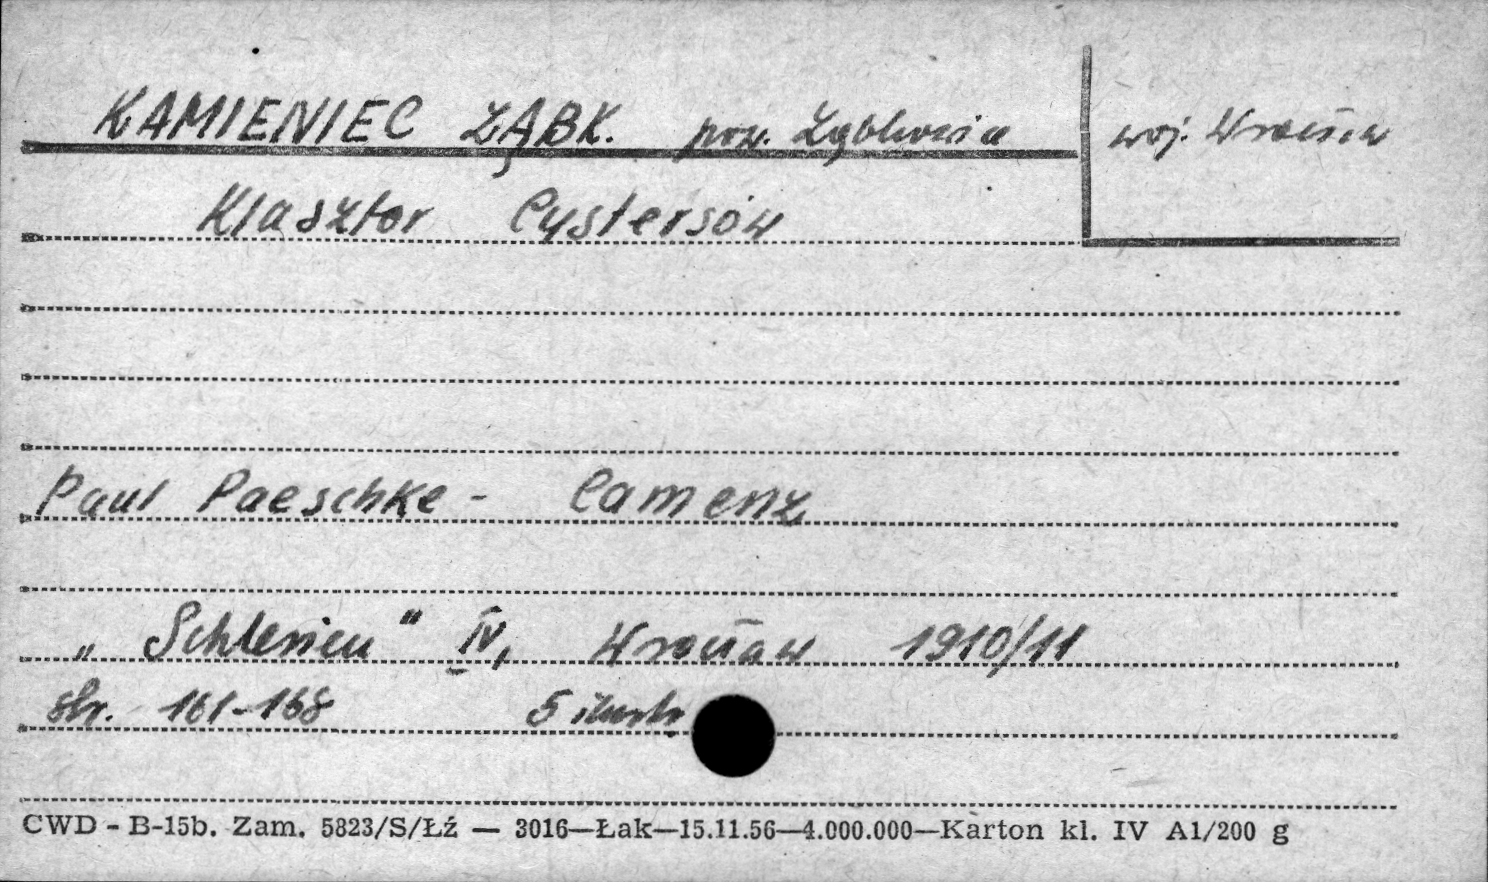 KAMIENIEC ZĄBK. pow. Ząbkowice woj. Wrocław
Klasztor Cystersów
Paul Paeschke - Camenz
„Schlesien" IV, Wrocław 1910/11
str. 161-168 5 ilustr
CWD - B-15b. Zam. 5823/S/Łź — 3016—Łak—15.11.56—4.000.000—Karton kl. IV A1/200 g